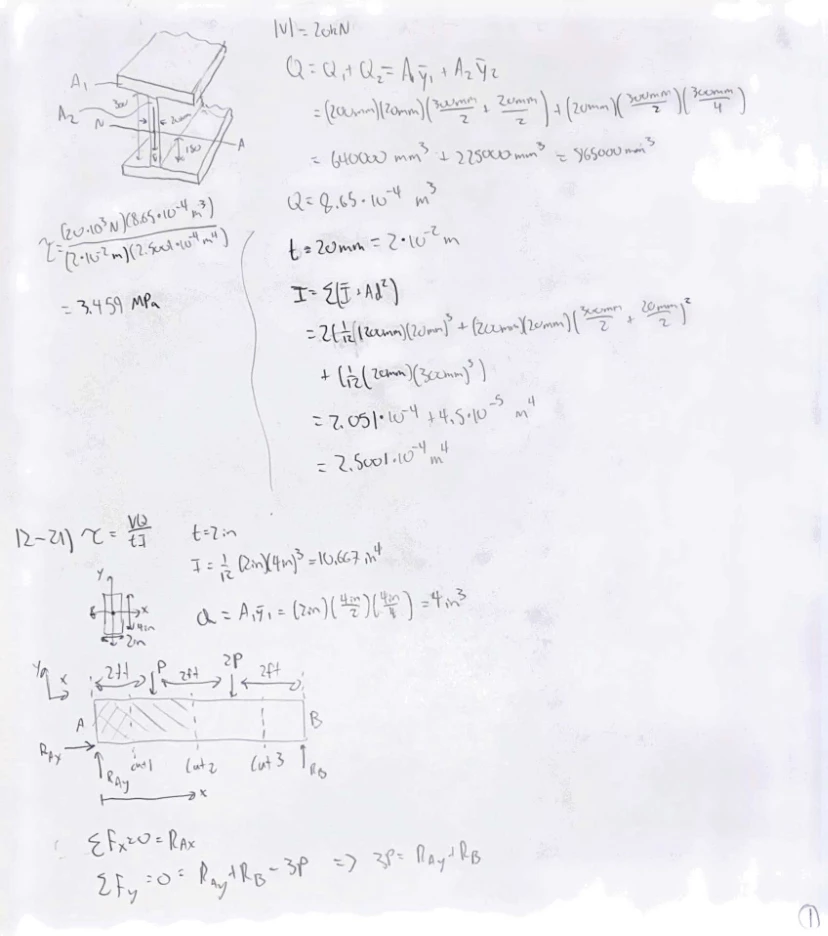 |V| = 20kN
Q = Q₁ + Q₂ = A₁ȳ₁ + A₂ȳ₂
= (200mm)(20mm)(300mm/2 + 20mm/2) + (20mm)(300mm/2)(300mm/4)
= 640000 mm³ + 225000mm³ = 865000mm³
Q = 8.65·10⁻⁴ m³
t = 20mm = 2·10⁻² m
I = Σ(Ī + Ad²)
= 2(1/12(200mm)(20mm)³ + (200mm)(20mm)(300mm/2 + 20mm/2)²
+ (1/12(20mm)(300mm)³)
= 2.051·10⁻⁴ + 4.5·10⁻⁵ m⁴
= 2.5001·10⁻⁴ m⁴
A₁
A₂
N
A
300
20mm
150
τ = (20·10³N)(8.65·10⁻⁴m³)/(2·10⁻²m)(2.5001·10⁻⁴m⁴)
= 3.459 MPa
12-21) τ = VQ/tI
t = 2in
I = 1/12 (2in)(4in)³ = 10.667in⁴
Q = A₁ȳ₁ = (2in)(4in/2)(4in/4) = 4in³
y
x
4in
2in
y x
2ft P 2ft 2P 2ft
A B
R_Ax
R_Ay cut1 Cut2 Cut3 R_B
x
ΣFx=0=R_Ax
ΣFy=0=R_Ay+R_B-3P => 3P=R_Ay+R_B
1